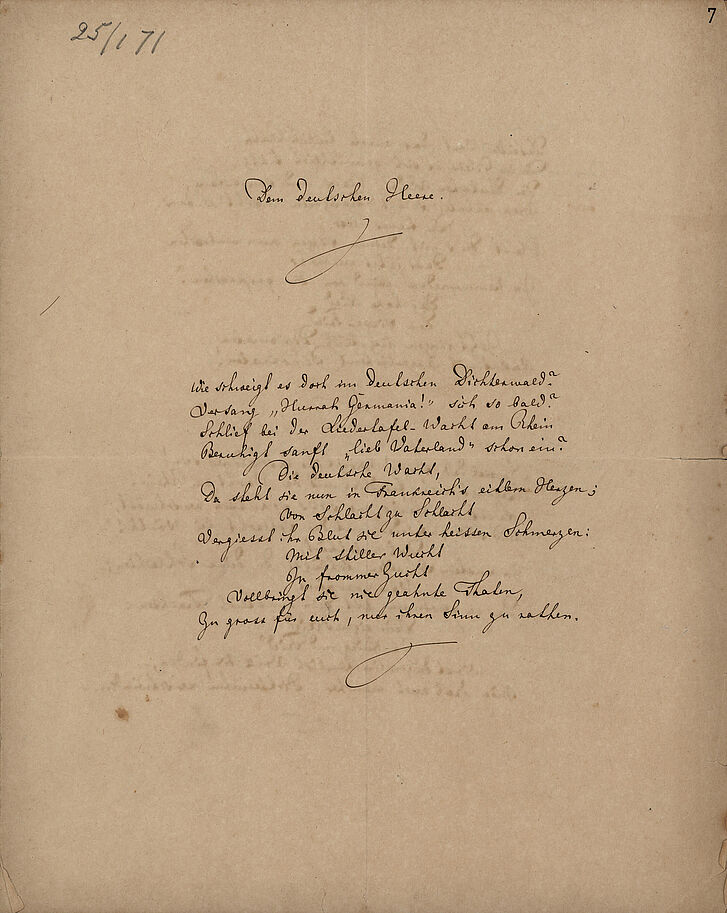 7
25/1 71
Dem deutschen Heere.
Wie schweigt es doch im deutschen Dichterwald?
Versang „Hurrah Germania!“ sich so bald?
Schlief bei der Liedertafel-Wacht am Rhein
Beruhigt sanft „lieb Vaterland“ schon ein?
Die deutsche Wacht,
Da steht sie nun in Frankreich's eitlem Herzen;
Von Schlacht zu Schlacht
Vergiesst ihr Blut sie unter heissen Schmerzen:
Mit stiller Wucht
In frommer Zucht
Vollbringt sie nie geahnte Thaten,
Zu gross für euch, nur ihren Sinn zu rathen.